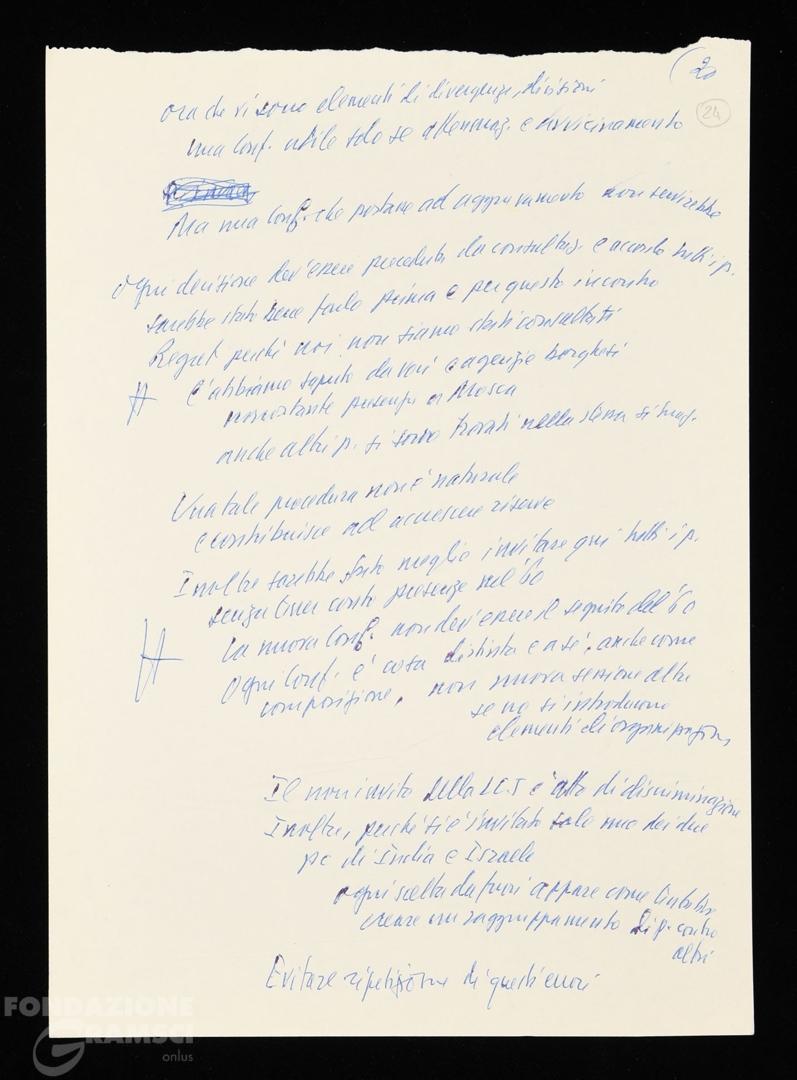 20
24
ora che vi sono elementi di divergenze, divisioni
una Conf. utile solo se attenuaz. e avvicinamento
Ma una Conf. che portare ad aggravamento non servirebbe
Ogni decisione dev'essere preceduta da consultaz. e accordo tutti i p.
sarebbe stato bene farlo prima e per questo incontro
Regret perché noi non siamo stati consultati
L'abbiamo saputo da voci e agenzie borghesi
nonostante presenza a Mosca
anche altri p. si sono trovati nella stessa situaz.
Una tale procedura non è naturale
e contribuisce ad accrescere riserve
Inoltre sarebbe stato meglio invitare qui tutti i p.
senza tener conto presenze nel '60
La nuova Conf. non dev'essere il seguito del '60
Ogni Conf. è cosa distinta e a sé, anche come
composizione, non nuova sessione altre
se no si introducono
elementi di organizzazione
Il non invito della LCJ è atto di discriminazione
Inoltre, perché si è invitato solo uno dei due
pc di India e Israele
Ogni scelta da fuori appare come tentativo
creare un raggruppamento di p. contro
altri
Evitare ripetizione di questi errori
FONDAZIONE
GRAMSCI
onlus